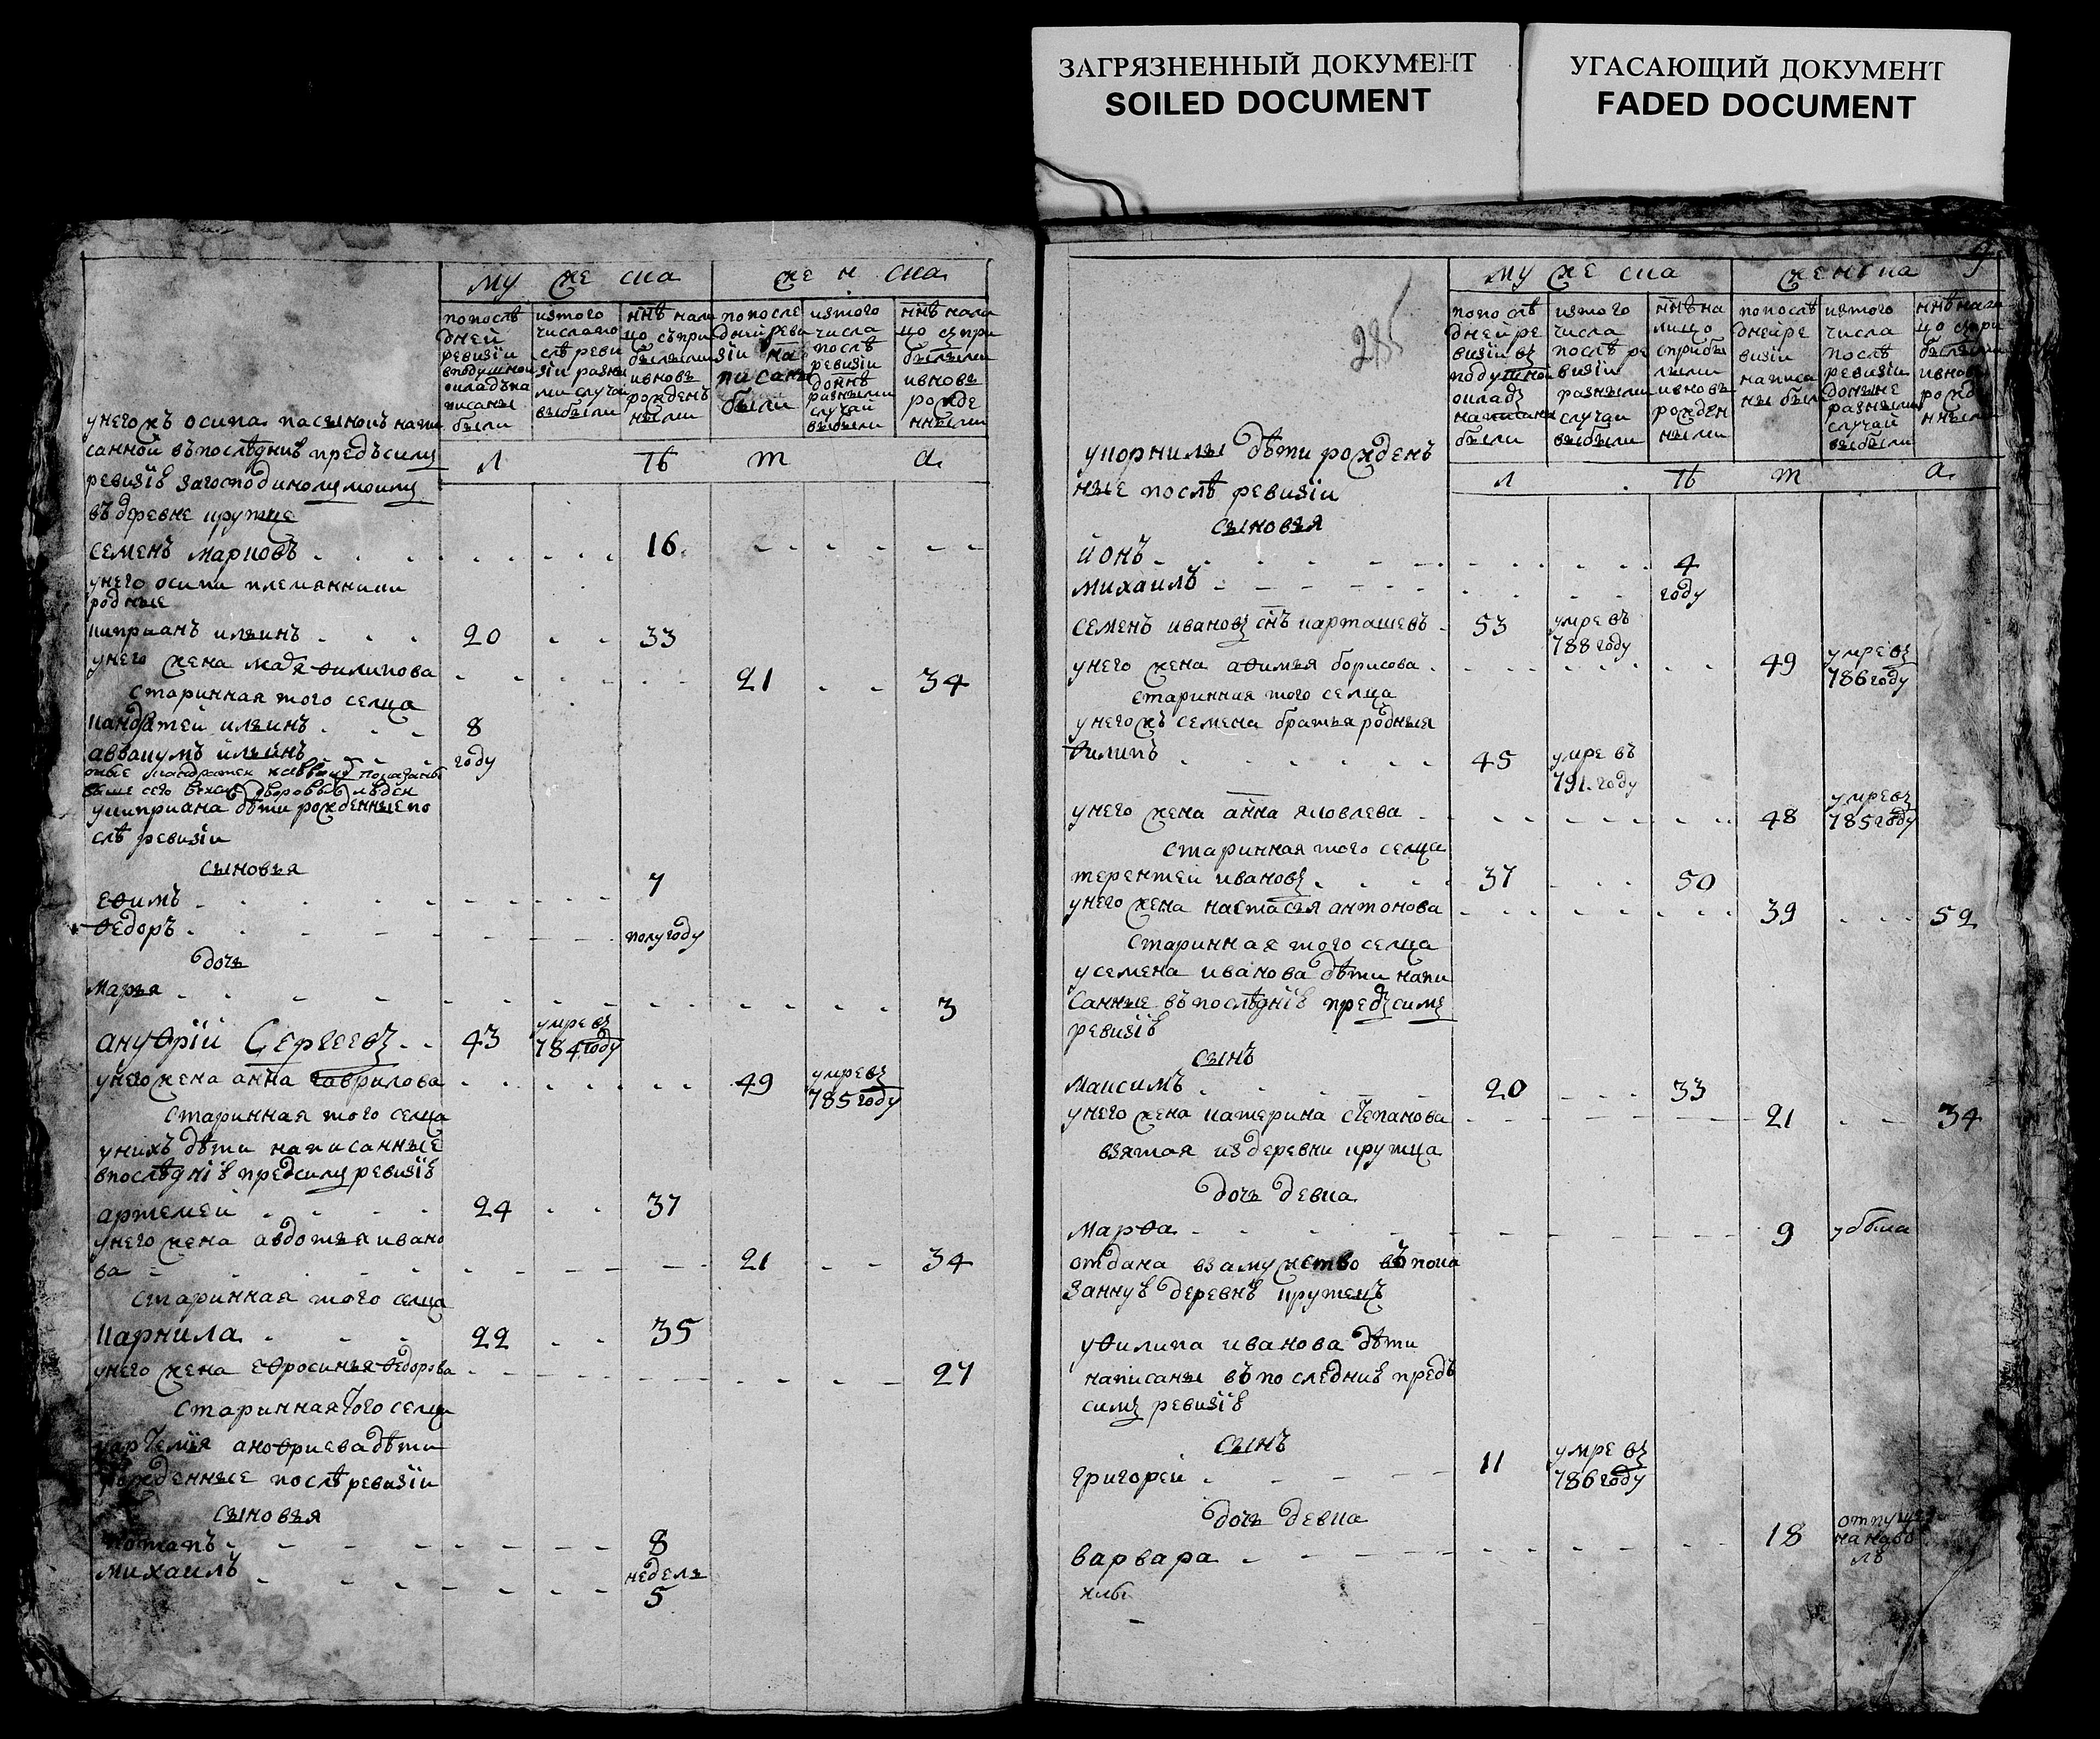 ЗАГРЯЗНЕННЫЙ ДОКУМЕНТ
SOILED DOCUMENT
УГАСАЮЩИЙ ДОКУМЕНТ
FADED DOCUMENT
мужеска женска
попослѣдней ревизіи вподушной окладъ написаны были
изтого числа послѣ ревизіи разными случаи выбыли
ннѣ налицо съприбылыми ивновь рожденными
попоследней ревизіи написаны были
изтого числа послѣ ревизіи доннѣ разными случай выбыли
ннѣ налицо съприбылыми ивновь рожденными
унегожъ осипа пасынокъ напи
санной въпослѣдниѣ предъсимъ
ревизіѣ загосподиномъ моимъ
въ деревне крутце
л ѣ т а
семенъ марковъ 16
унего осипа племянники
родные
киприанъ ильинъ 20 33
унего жена мадя филипова 21 34
старинная того селца
пандратей ильинъ 8
аввакумъ ильинъ году
укиприана дѣти рожденные по
слѣ ревизіи
сыновья
ефимъ 7
федоръ полугоду
дочь
марья 3
ануфрій Сергеевъ 43 умре въ 784 году
унего жена анна гаврилова 49 умре въ 785 году
старинная того селца
унихъ дѣти написанные
впослѣдніѣ предсимъ ревизіѣ
артемей 24 37
унего жена авдотья ивано
ва 21 34
старинная того селца
карнила 22 35
унего жена ефросинья федорова 27
старинная того селца
уартемья анофриева дѣти
рожденные послѣ ревизіи
сыновья
потапъ 8
михаилъ недель 5
285
9
мужеска женска
попослѣдней ревизіи въ подушной окладъ написаны были
изтого числа послѣ ревизіи разными случаи выбыли
ннѣ налицо сприбылыми ивновь рожденными
попослѣдней ревизіи написаны были
изтого числа послѣ ревизіи доныне разными случай выбыли
ннѣ налицо съприбылыми ивновь рожденными
укорнилы дѣти рожденъ
ные послѣ ревизіи
л ѣ т а
сыновья
йонъ 4
михаилъ году
семенъ ивановъ снъ карташевъ 53 умре въ 788 году
унего жена афимья борисова 49 умре въ 786 году
старинная того селца
унегожъ семена братья родныя
филипъ 45 умре въ 791 году
унего жена анна яковлева 48 умре въ 785 году
старинная того селца
терентей ивановъ 37 50
унего жена настасья антонова 39 52
старинная того селца
усемена иванова дѣти напи
санные въпослѣдніѣ предъсимъ
ревизіѣ
сынъ
максимъ 20 33
унего жена катерина степанова 21 34
взятая издеревни крутца
дочь девка
марфа 9 убыла
отдана взамужство въпока
заннуѣ деревнѣ крутецъ
уфилипа иванова дѣти
написаны въпоследниѣ предъ
симъ ревизіѣ
сынъ
григорей 11 умре въ 786 году
дочь девка
варвара 18 отпущена наволь